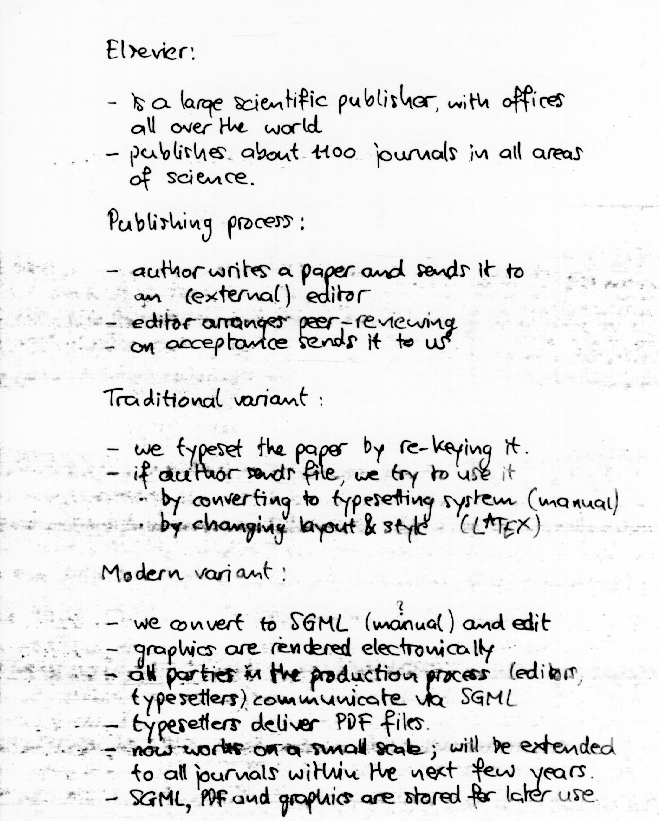 Elsevier:
- is a large scientific publisher, with offices
all over the world
- publishes about 1100 journals in all areas
of science.
Publishing process:
- author writes a paper and sends it to
an (external) editor
- editor arranges peer-reviewing
- on acceptance sends it to us
Traditional variant:
- we typeset the paper by re-keying it.
- if author sends file, we try to use it
· by converting to typesetting system (manual)
· by changing layout & style (LATEX)
Modern variant:
?
- we convert to SGML (manual) and edit
- graphics are rendered electronically
- all parties in the production process (editors,
typesetters) communicate via SGML
- typesetters deliver PDF files.
- now works on a small scale; will be extended
to all journals within the next few years.
- SGML, PDF and graphics are stored for later use